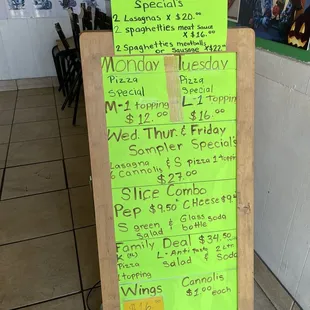 Specials
2 Lasagnas x $20.00
2 spaghetties meat sauce
x $16.00
2 Spaghetties meatballs
or Sausage x $22
Monday Tuesday
Pizza Pizza
Special Special
M-1 topping L-1 Topping
$12.00 $16.00
Wed. Thur. & Friday
Sampler Specials
Lasagna & S pizza 1 topping
6 Cannolis
$27.00
Slice Combo
Pep $9.50 Cheese $9
S green & Glass soda
Salad bottle
Family Deal $34.50
Pizza L-Antipasto 2 Ltr
1 topping Salad & Soda
Wings Cannolis
$1.00 each